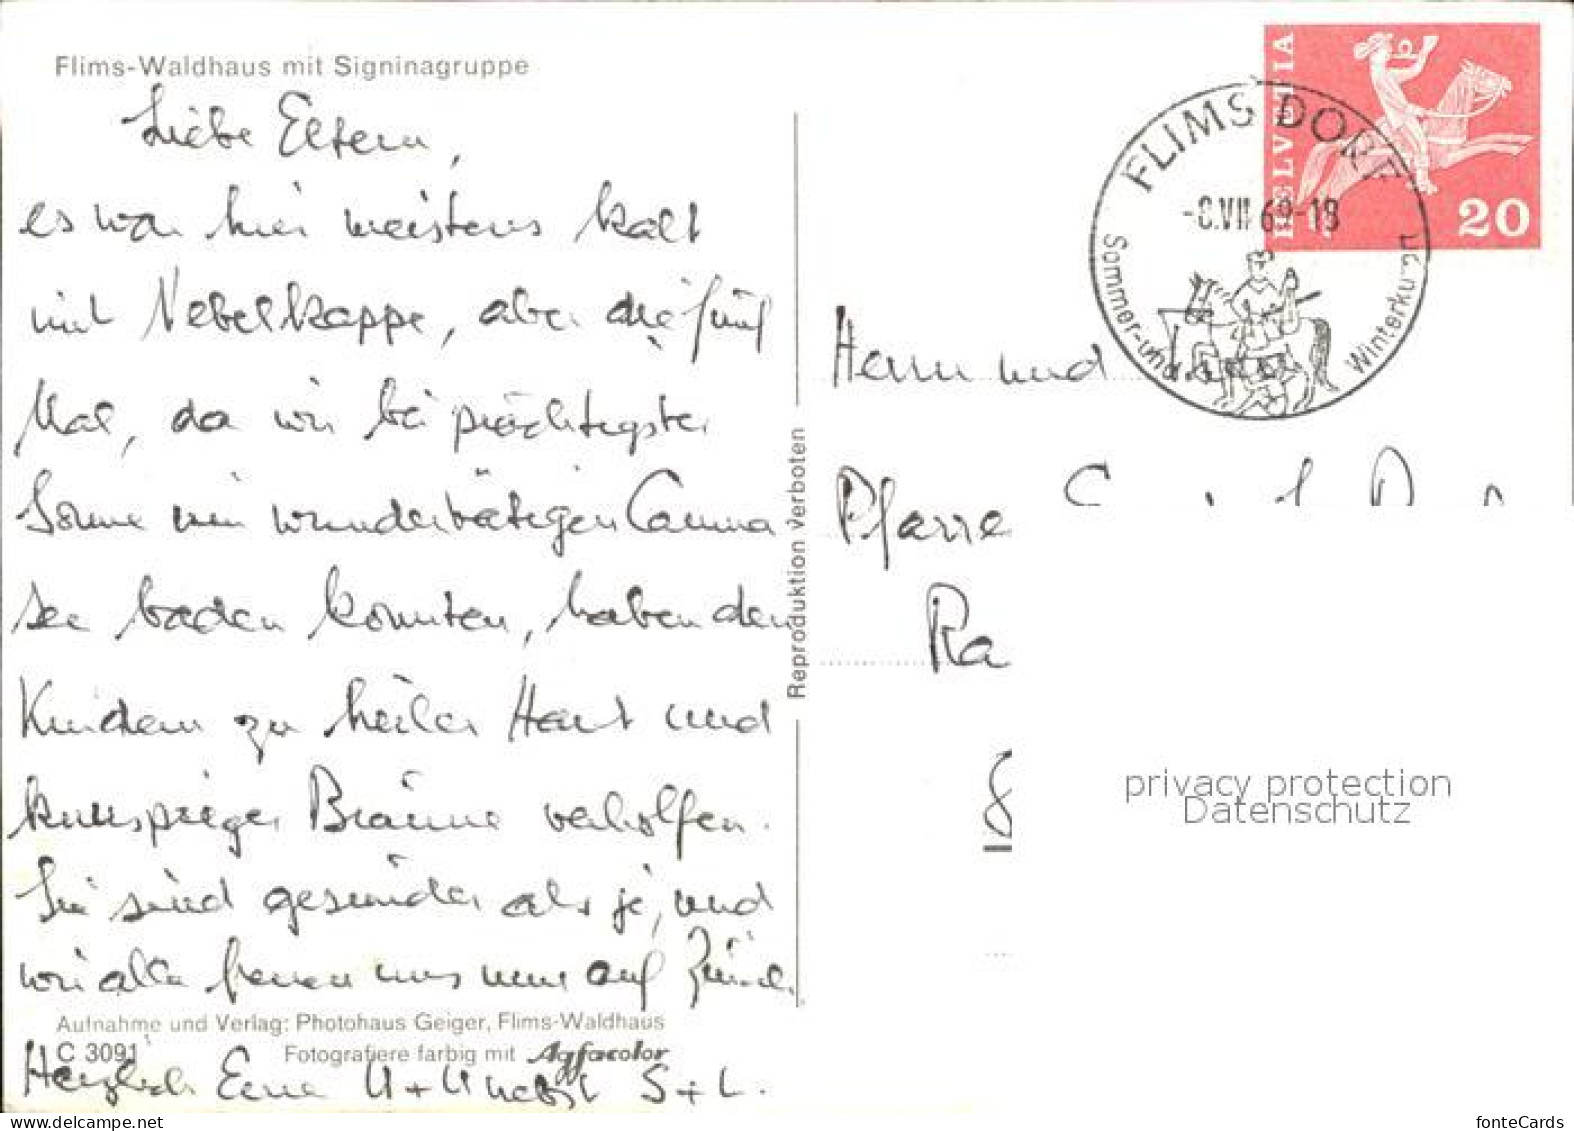 Flims-Waldhaus mit Signinagruppe
Liebe Eltern,
es war hier meistens kalt
mit Nebelkappe, aber die fünf
Mal, da wir bei prächtigster
Sonne im wundertätigen Cauma
see baden konnten, haben den
Kindern zu heiler Haut und
knuspriger Bräune verholfen.
Sie sind gesünder als je, und
wir alle freuen uns nun auf Zürich.
Aufnahme und Verlag: Photohaus Geiger, Flims-Waldhaus
C 3091
Fotografiere farbig mit Agfacolor
Herzlich Eure U + U nebst S + L.
Reproduktion verboten
HELVETIA
20
FLIMS DORF
VII 69-18
Sommer- und
Winterkurort
Herrn und
Pfarre
Ra
8
privacy protection
Datenschutz
fonteCards